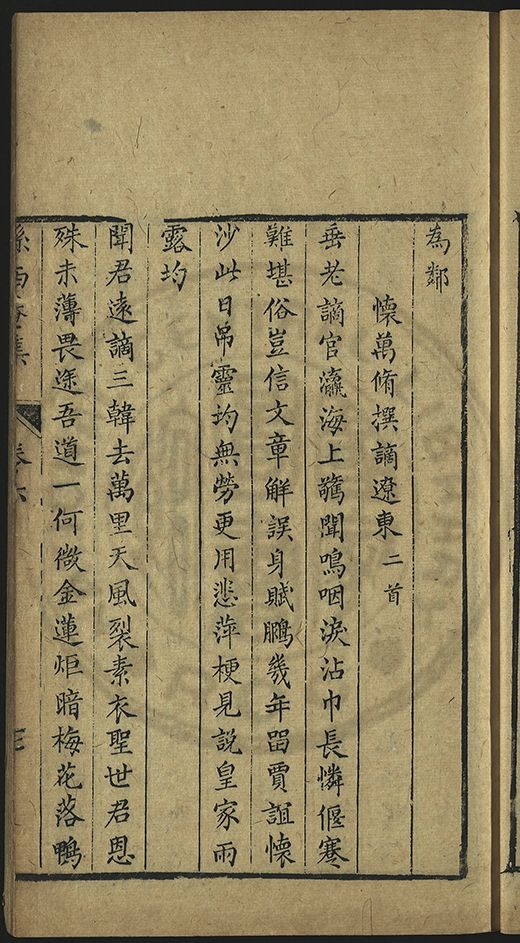 為鄰
懷萬脩撰謫遼東二首
垂老謫官瀛海上驚聞鳴咽淚沾巾長憐偃蹇
難堪俗豈信文章解誤身賦鵬幾年留賈誼懷
沙此日吊靈均無勞更用悲萍梗見說皇家雨
露均
聞君遠謫三韓去萬里天風裂素衣聖世君恩
殊未薄畏途吾道一何微金蓮炬暗梅花落鴨
集
卷六